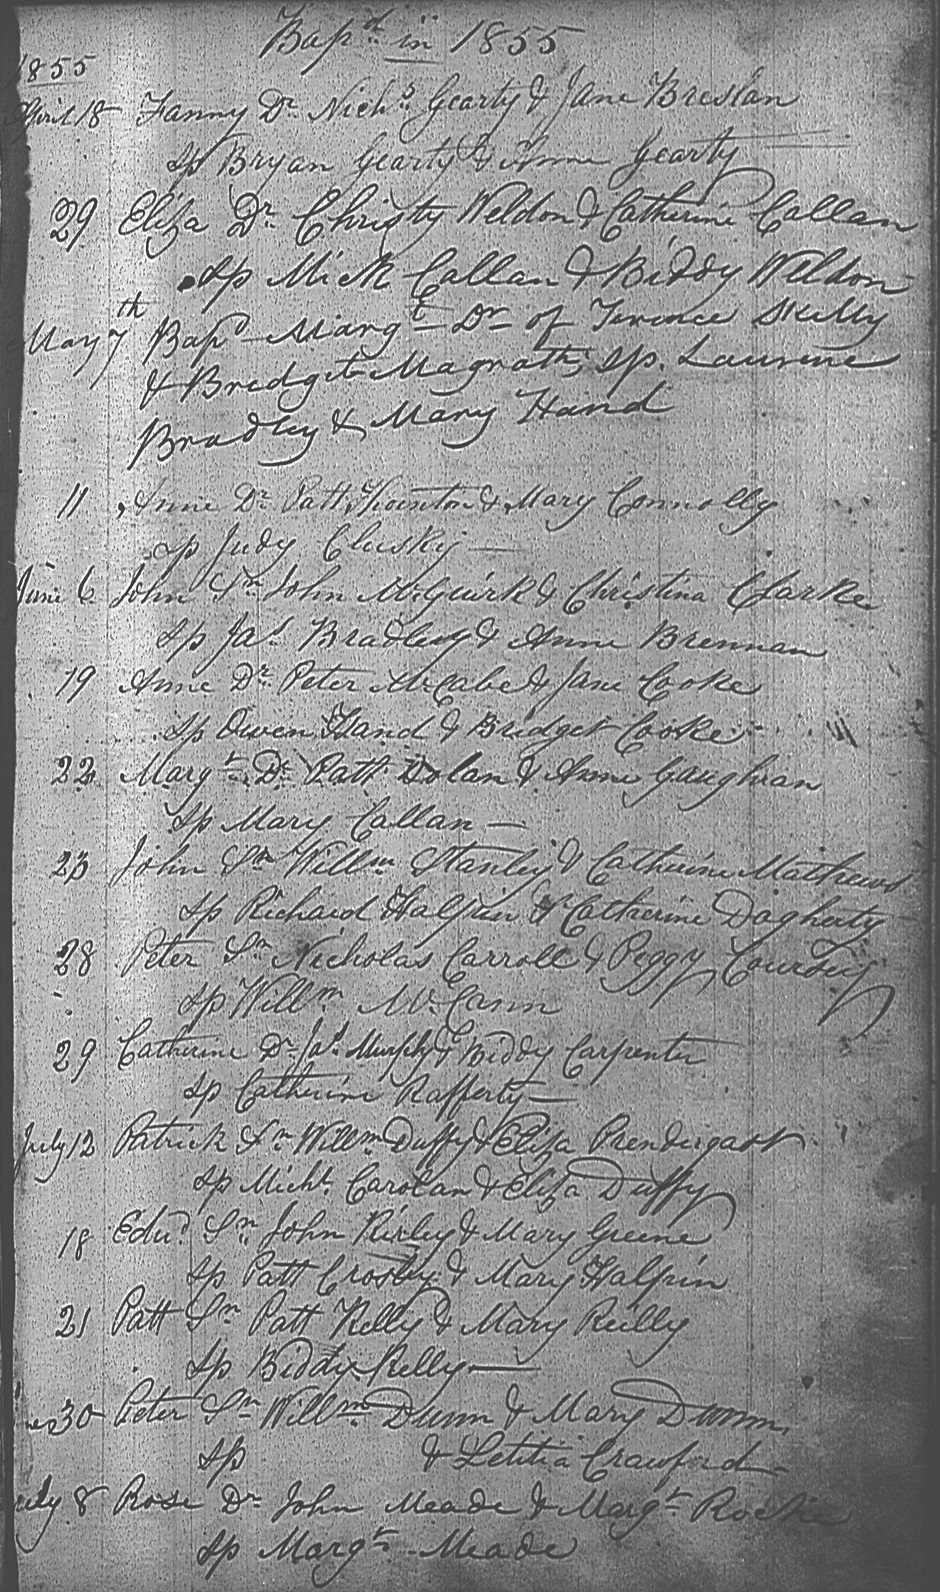 Bapd in 1855
1855
April 18 Fanny Dr Nichs Gearty & Jane Breslan
Sp Bryan Gearty & Anne Gearty
29 Eliza Dr Christy Weldon & Catherine Callan
Sp Mick Callan & Biddy Weldon
May 7th Bapd Margt Dr of Terence Skelly
& Bridget Magrath, Sp. Laurence
Bradley & Mary Hand
11 Anne Dr Patt Thornton & Mary Connolly
Sp Judy Clusky
June 6 John Sn John McGuirk & Christina Clarke
Sp Jas Bradley & Anne Brennan
19 Anne Dr Peter McCabe & Jane Cooke
Sp Owen Hand & Bridget Cooke
22 Margt Dr Patt Dolan & Anne Gaughran
Sp Mary Callan
23 John Sn Willm Stanley & Catherine Mathews
Sp Richard Halpin & Catherine Dogherty
28 Peter Sn Nicholas Carroll & Peggy Coursey
Sp Willm McCann
29 Catherine Dr Jas Murphy & Biddy Carpenter
Sp Catherine Rafferty
July 12 Patrick Sn Willm Duffy & Eliza Prendergast
Sp Michl Carolan & Eliza Duffy
18 Edwd Sn John Kirley & Mary Greene
Sp Patt Crosby & Mary Halpin
21 Patt Sn Patt Kelly & Mary Reilly
Sp Biddy Kelly
30 Peter Sn Willm Dunn & Mary Dunn
Sp & Letitia Crawford
July 8 Rose Dr John Meade & Margt Roche
Sp Margt Meade